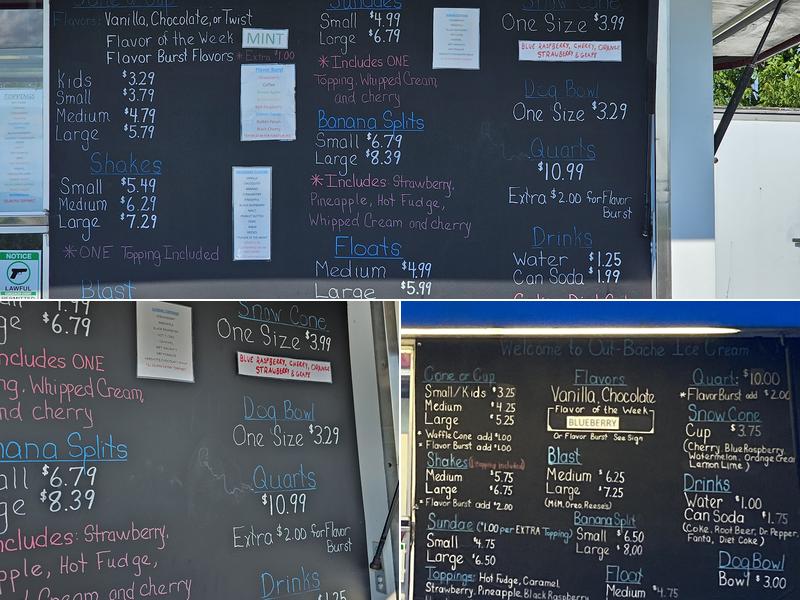 Cone or Cup
Flavors: Vanilla, Chocolate, or Twist
Flavor of the Week MINT
Flavor Burst Flavors * Extra $1.00
Kids $3.29
Small $3.79
Medium $4.79
Large $5.79
Flavor Burst
Shakes
Small $5.49
Medium $6.29
Large $7.29
*ONE Topping Included
Blast
TOPPINGS
NOTICE
LAWFUL
Sundaes
Small $4.99
Large $6.79
*Includes ONE
Topping, Whipped Cream
and cherry
Banana Splits
Small $6.79
Large $8.39
*Includes: Strawberry,
Pineapple, Hot Fudge,
Whipped Cream and cherry
Floats
Medium $4.99
Large $5.99
Snow Cone
One Size $3.99
BLUE RASPBERRY, CHERRY, ORANGE
STRAWBERRY & GRAPE
Dog Bowl
One Size $3.29
Quarts
$10.99
Extra $2.00 for Flavor
Burst
Drinks
Water $1.25
Can Soda $1.99
ge $6.79
ncludes ONE
ng, Whipped Cream,
nd cherry
nana Splits
all $6.79
ge $8.39
ncludes: Strawberry,
pple, Hot Fudge,
Cream and cherry
Snow Cone
One Size $3.99
BLUE RASPBERRY, CHERRY, ORANGE
STRAWBERRY & GRAPE
Dog Bowl
One Size $3.29
Quarts
$10.99
Extra $2.00 for Flavor
Burst
Drinks
$1.25
Welcome to Out-Bache Ice Cream
Cone or Cup
Small/Kids $3.25
Medium $4.25
Large $5.25
* Waffle Cone add $1.00
* Flavor Burst add $1.00
Shakes (1 topping included)
Medium $5.75
Large $6.75
* Flavor Burst add $2.00
Sundae ($1.00 per EXTRA Topping)
Small $4.75
Large $6.50
Toppings: Hot Fudge, Caramel,
Strawberry, Pineapple, Black Raspberry
Flavors
Vanilla, Chocolate
Flavor of the Week
BLUEBERRY
Or Flavor Burst See Sign
Blast
Medium $6.25
Large $7.25
(M&M, Oreo, Reese's)
Banana Split
Small $6.50
Large $8.00
Float
Medium $4.75
Quart: $10.00
*Flavor Burst add $2.00
Snow Cone
Cup $3.75
(Cherry, Blue Raspberry
Watermelon, Orange Cream
Lemon Lime)
Drinks
Water $1.00
Can Soda $1.75
(Coke, Root Beer, Dr. Pepper,
Fanta, Diet Coke)
Dog Bowl
Bowl $3.00